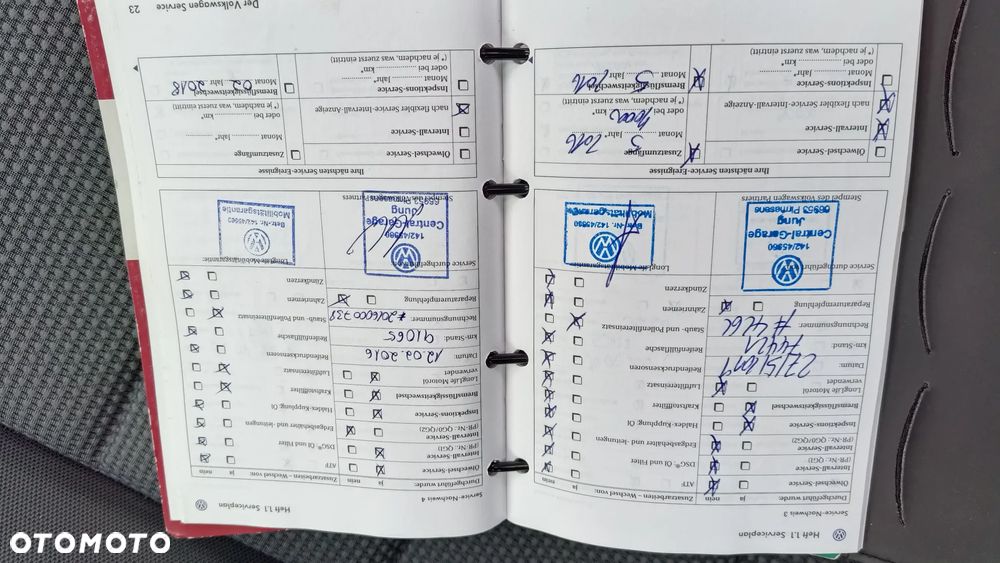 Heft 1.1 Serviceplan
Service-Nachweis 3
Durchgeführt wurde: ja nein
Ölwechsel-Service
Intervall-Service
(PR-Nr.: QG1)
Intervall-Service
(PR-Nr.: QG0/QG2)
Inspektions-Service
Bremsflüssigkeitswechsel
LongLife Motoröl
verwendet
Datum:
km-Stand:
Rechnungsnummer:
Reparaturempfehlung
Zusatzarbeiten – Wechsel von: ja nein
ATF
DSG®, Öl und Filter
Erdgasbehälter und -leitungen
Haldex-Kupplung Öl
Kraftstofffilter
Luftfiltereinsatz
Reifendrucksensoren
Reifenfüllflasche
Staub- und Pollenfiltereinsatz
Zahnriemen
Zündkerzen
Service durchgeführt
142/45960
Central-Garage
Jung
66953 Pirmasens
Stempel des Volkswagen Partners
LongLife Mobilitätsgarantie:
Betr.-Nr. 142/45960
Mobilitätsgarantie
Ihre nächsten Service-Ereignisse
Ölwechsel-Service
Intervall-Service
nach flexibler Service-Intervall-Anzeige
Inspektions-Service
Monat Jahr*
oder bei km*
(*je nachdem, was zuerst eintritt)
Zusatzumfänge
Monat 5 Jahr* 2016
oder bei km*
(*je nachdem, was zuerst eintritt)
Bremsflüssigkeitswechsel
Monat 5 Jahr 2016
Heft 1.1 Serviceplan
Service-Nachweis 4
Durchgeführt wurde: ja nein
Ölwechsel-Service
Intervall-Service
(PR-Nr.: QG1)
Intervall-Service
(PR-Nr.: QG0/QG2)
Inspektions-Service
Bremsflüssigkeitswechsel
LongLife Motoröl
verwendet
Datum: 12.02.2016
km-Stand: 91065
Rechnungsnummer:
Reparaturempfehlung
Zusatzarbeiten – Wechsel von: ja nein
ATF
DSG®, Öl und Filter
Erdgasbehälter und -leitungen
Haldex-Kupplung Öl
Kraftstofffilter
Luftfiltereinsatz
Reifendrucksensoren
Reifenfüllflasche
Staub- und Pollenfiltereinsatz
Zahnriemen
Zündkerzen
Service durchgeführt
142/45960
Central-Garage
Jung
66953 Pirmasens
Stempel des Volkswagen Partners
LongLife Mobilitätsgarantie:
Betr.-Nr. 142/45960
Mobilitätsgarantie
Ihre nächsten Service-Ereignisse
Ölwechsel-Service
Intervall-Service
nach flexibler Service-Intervall-Anzeige
Inspektions-Service
Monat Jahr*
oder bei km*
(*je nachdem, was zuerst eintritt)
Zusatzumfänge
Monat Jahr*
oder bei km*
(*je nachdem, was zuerst eintritt)
Bremsflüssigkeitswechsel
Monat 02 Jahr 2018
Der Volkswagen Service 23
OTOMOTO